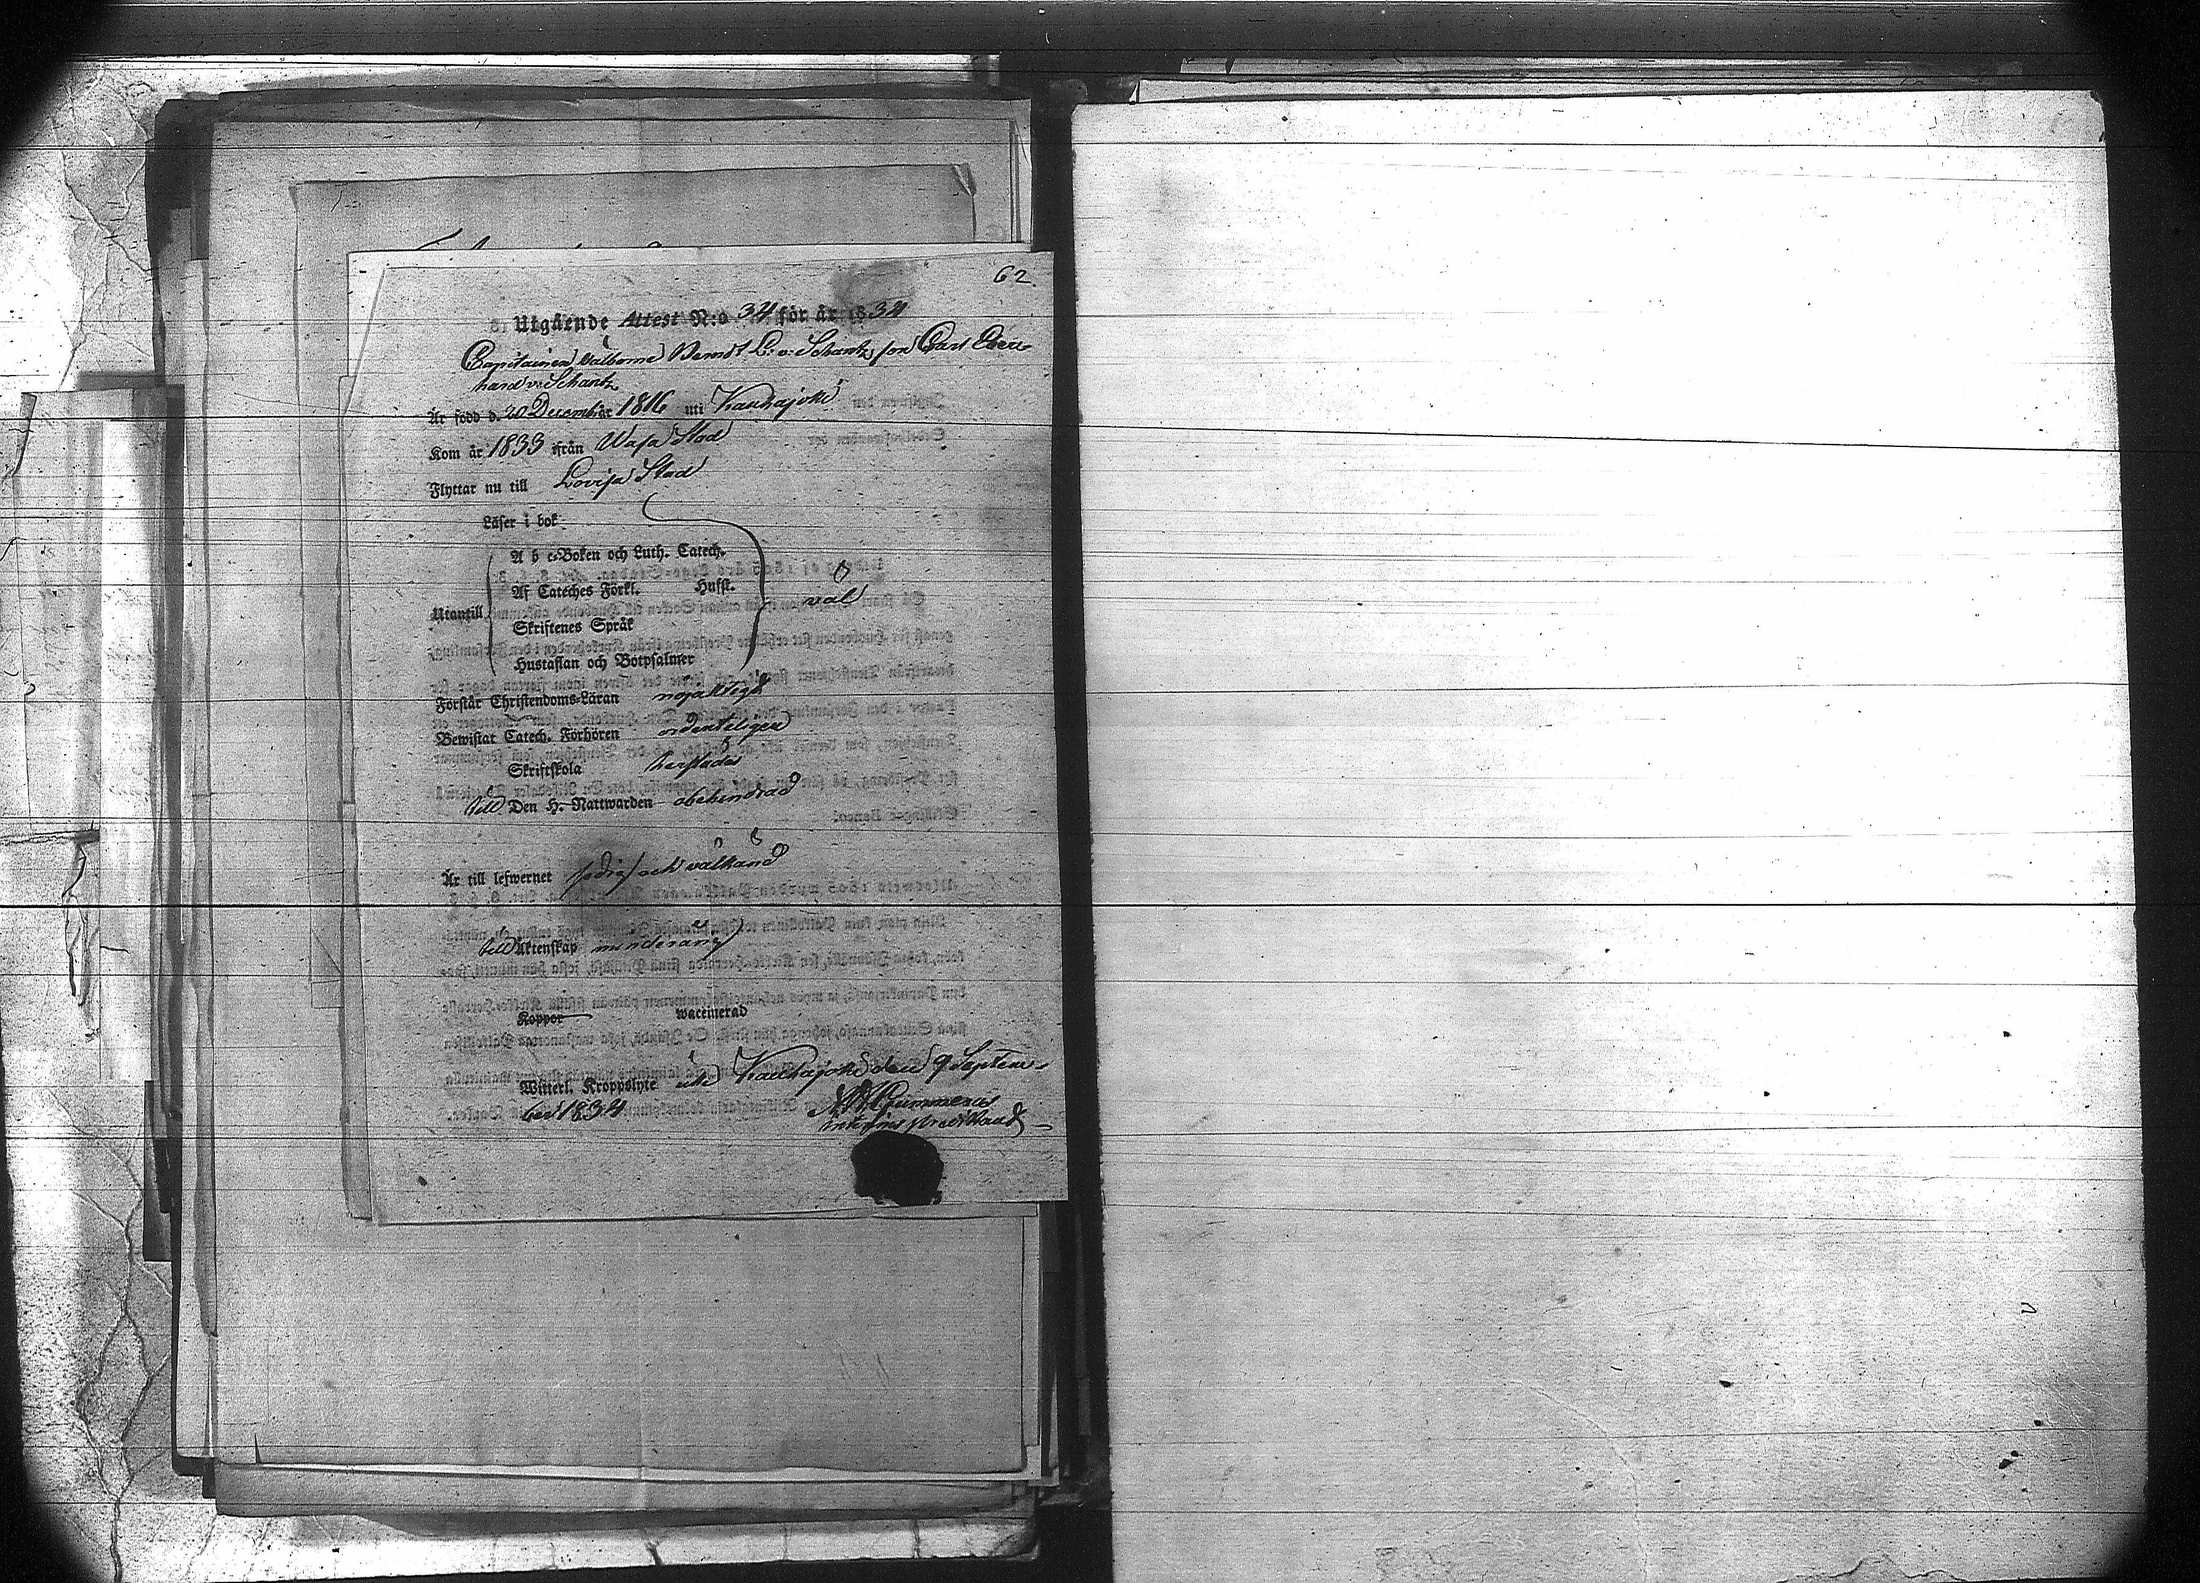 62.
Utgående Attest N:o 34 för år 1834
Capitainen Välborne Berndt L: v: Schantz son Carl Eber-
hard v: Schantz
Är född d. 20 December 1816 uti Kauhajoki
Kom år 1833 ifrån Wasa Stad
Flyttar nu till Lovisa Stad
Läser i bok
A b c-Boken och Luth. Catech.
Af Cateches Förkl. Husst.
väl
Utantill
Skriftenes Språk
Hustaflan och Botpsalmer
Förstår Christendoms-Läran nöjaktigt
Bewistat Catech. Förhören ordenteligen
Skriftskola härstädes
till Den H. Nattwarden obehindrad
Är till lefwernet sedig och välkänd
till Äktenskap minderårig
Koppor waccinerad
Witterl. Kroppslyte Kauhajoki den 9 Septem-
ber 1834
Gummerus